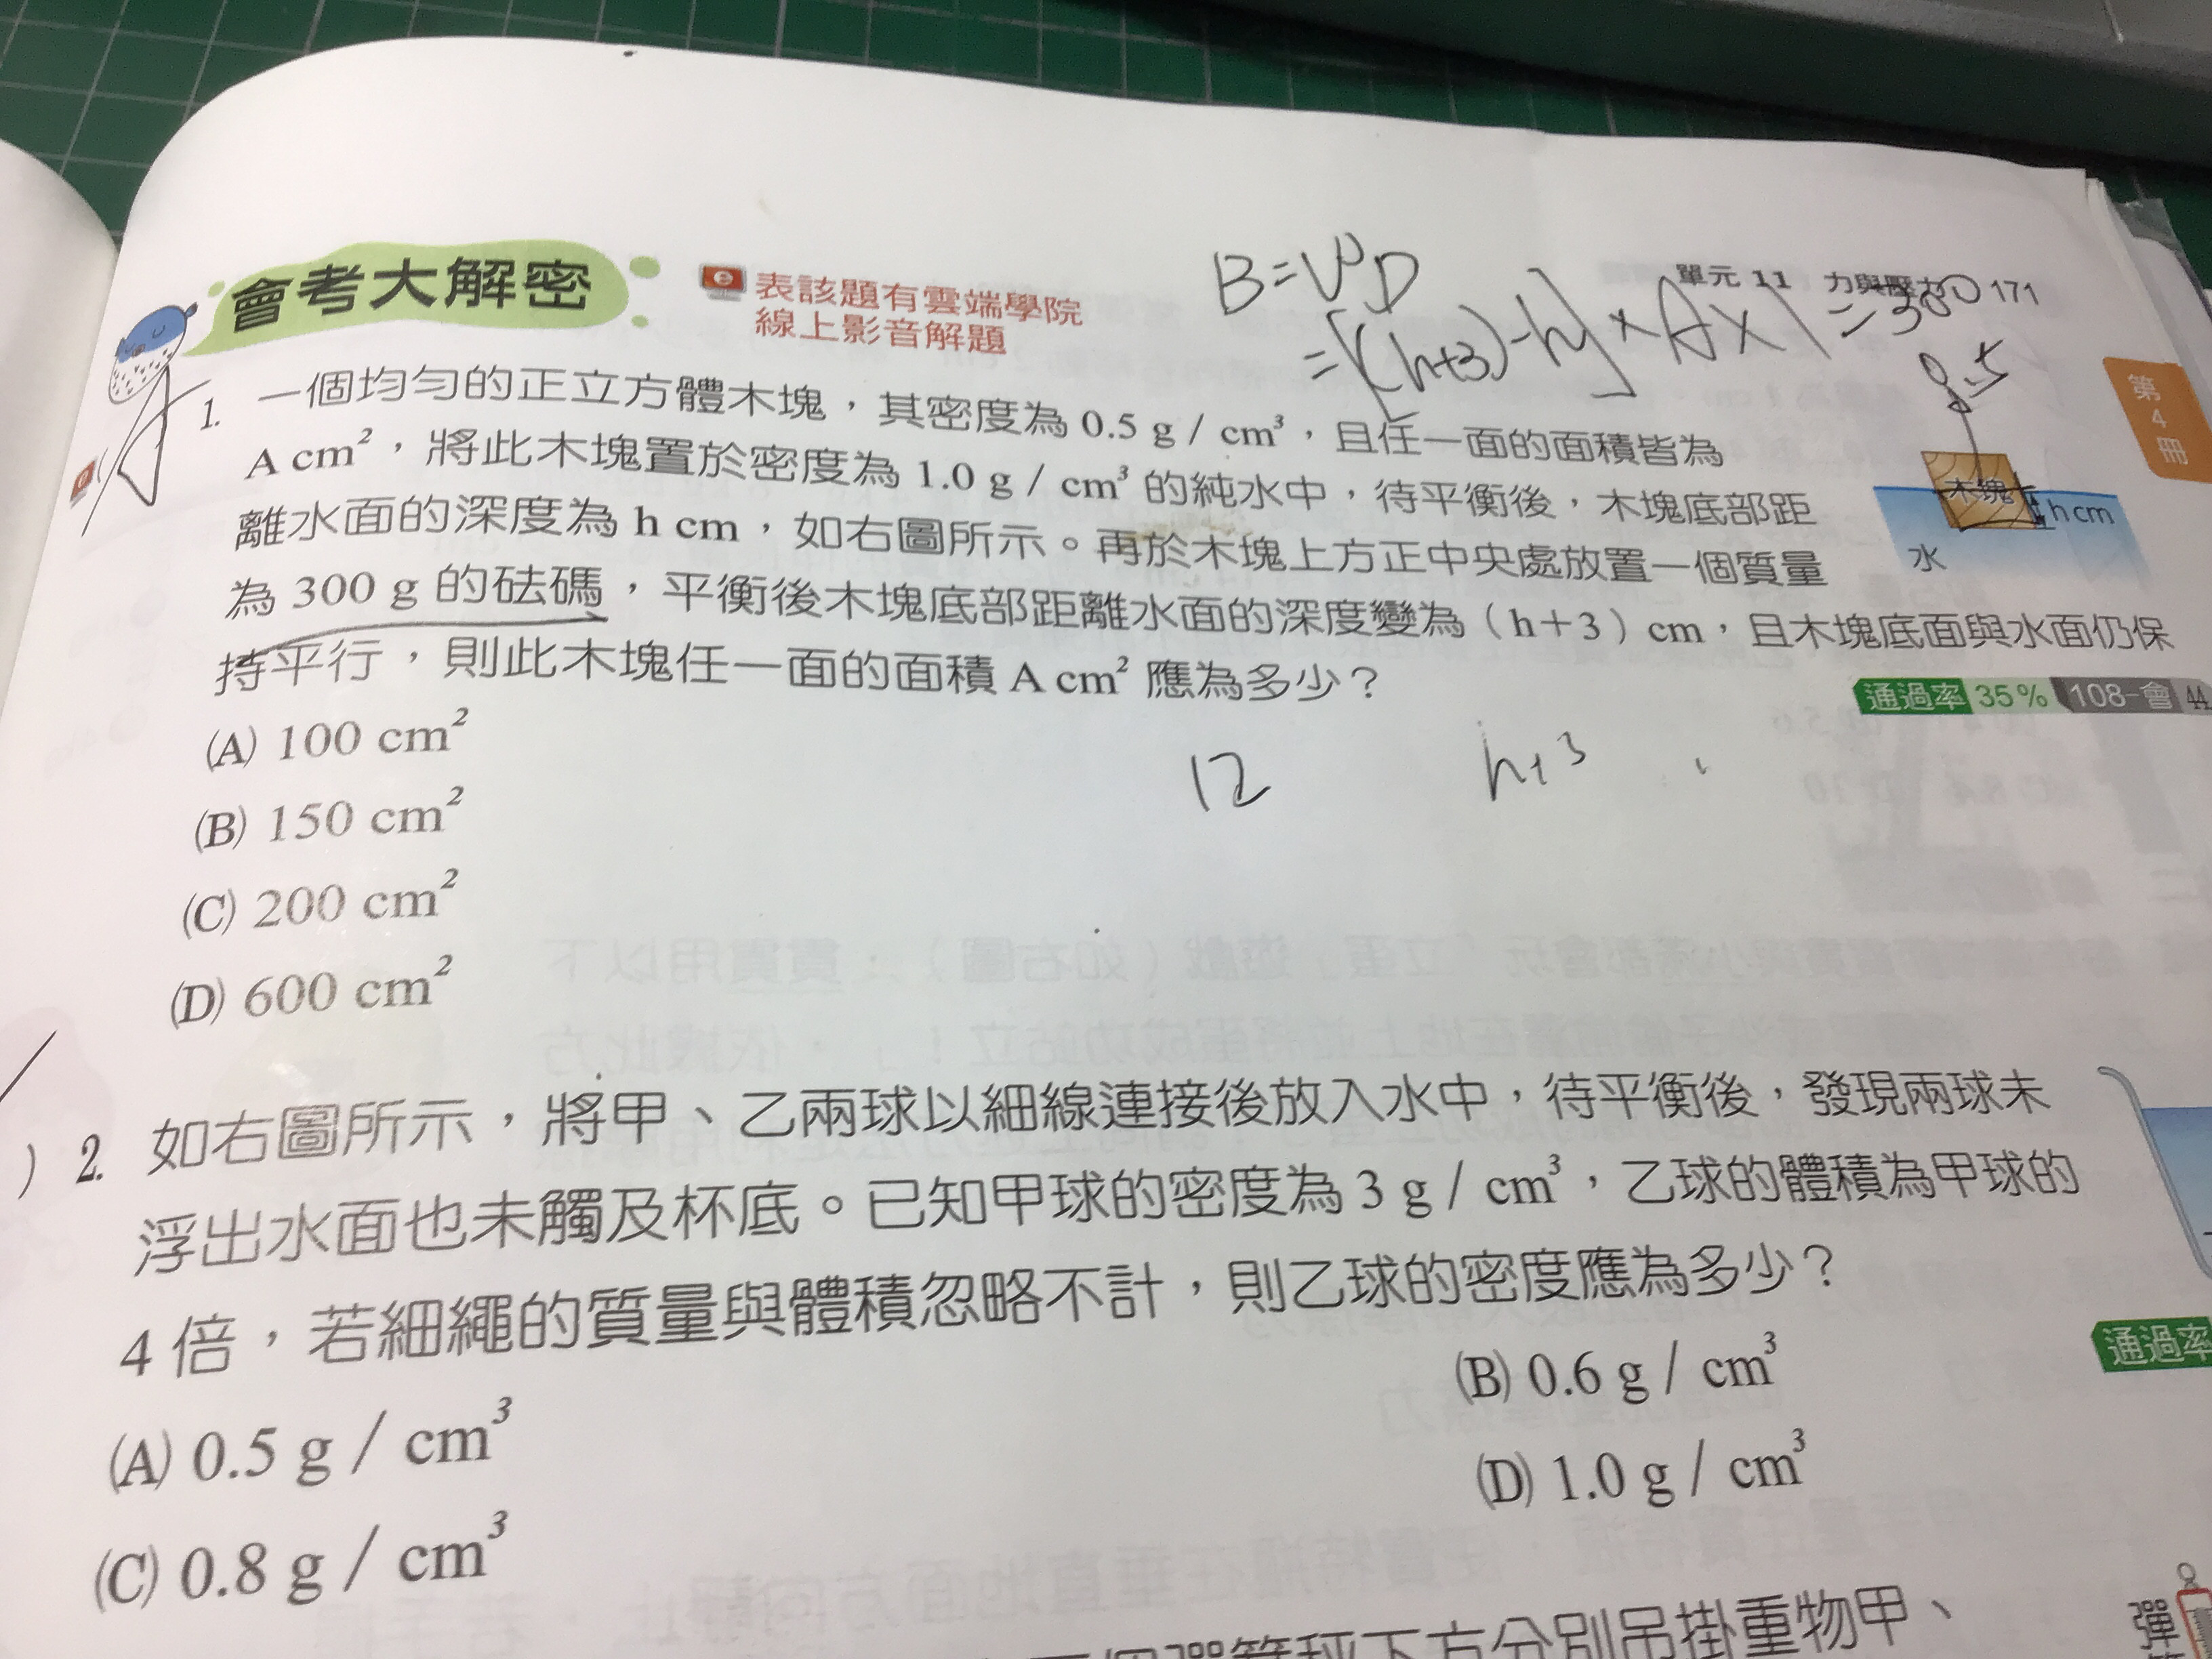 單元 11 力與壓力 171
B=VD
=[(h+3)-h]×A×1=300
會考大解密
表該題有雲端學院
線上影音解題
第4冊
1. 一個均勻的正立方體木塊，其密度為 0.5 g / cm³，且任一面的面積皆為
A cm²，將此木塊置於密度為 1.0 g / cm³ 的純水中，待平衡後，木塊底部距
離水面的深度為 h cm，如右圖所示。再於木塊上方正中央處放置一個質量
為 300 g 的砝碼，平衡後木塊底部距離水面的深度變為（h＋3）cm，且木塊底面與水面仍保
持平行，則此木塊任一面的面積 A cm² 應為多少？
木塊
h cm
水
通過率 35% 108-會 44
(A) 100 cm²
(B) 150 cm²
(C) 200 cm²
(D) 600 cm²
12 h+3
) 2. 如右圖所示，將甲、乙兩球以細線連接後放入水中，待平衡後，發現兩球未
浮出水面也未觸及杯底。已知甲球的密度為 3 g / cm³，乙球的體積為甲球的
4 倍，若細繩的質量與體積忽略不計，則乙球的密度應為多少？
通過率
(A) 0.5 g / cm³ (B) 0.6 g / cm³
(C) 0.8 g / cm³ (D) 1.0 g / cm³
下方分別吊掛重物甲、
彈